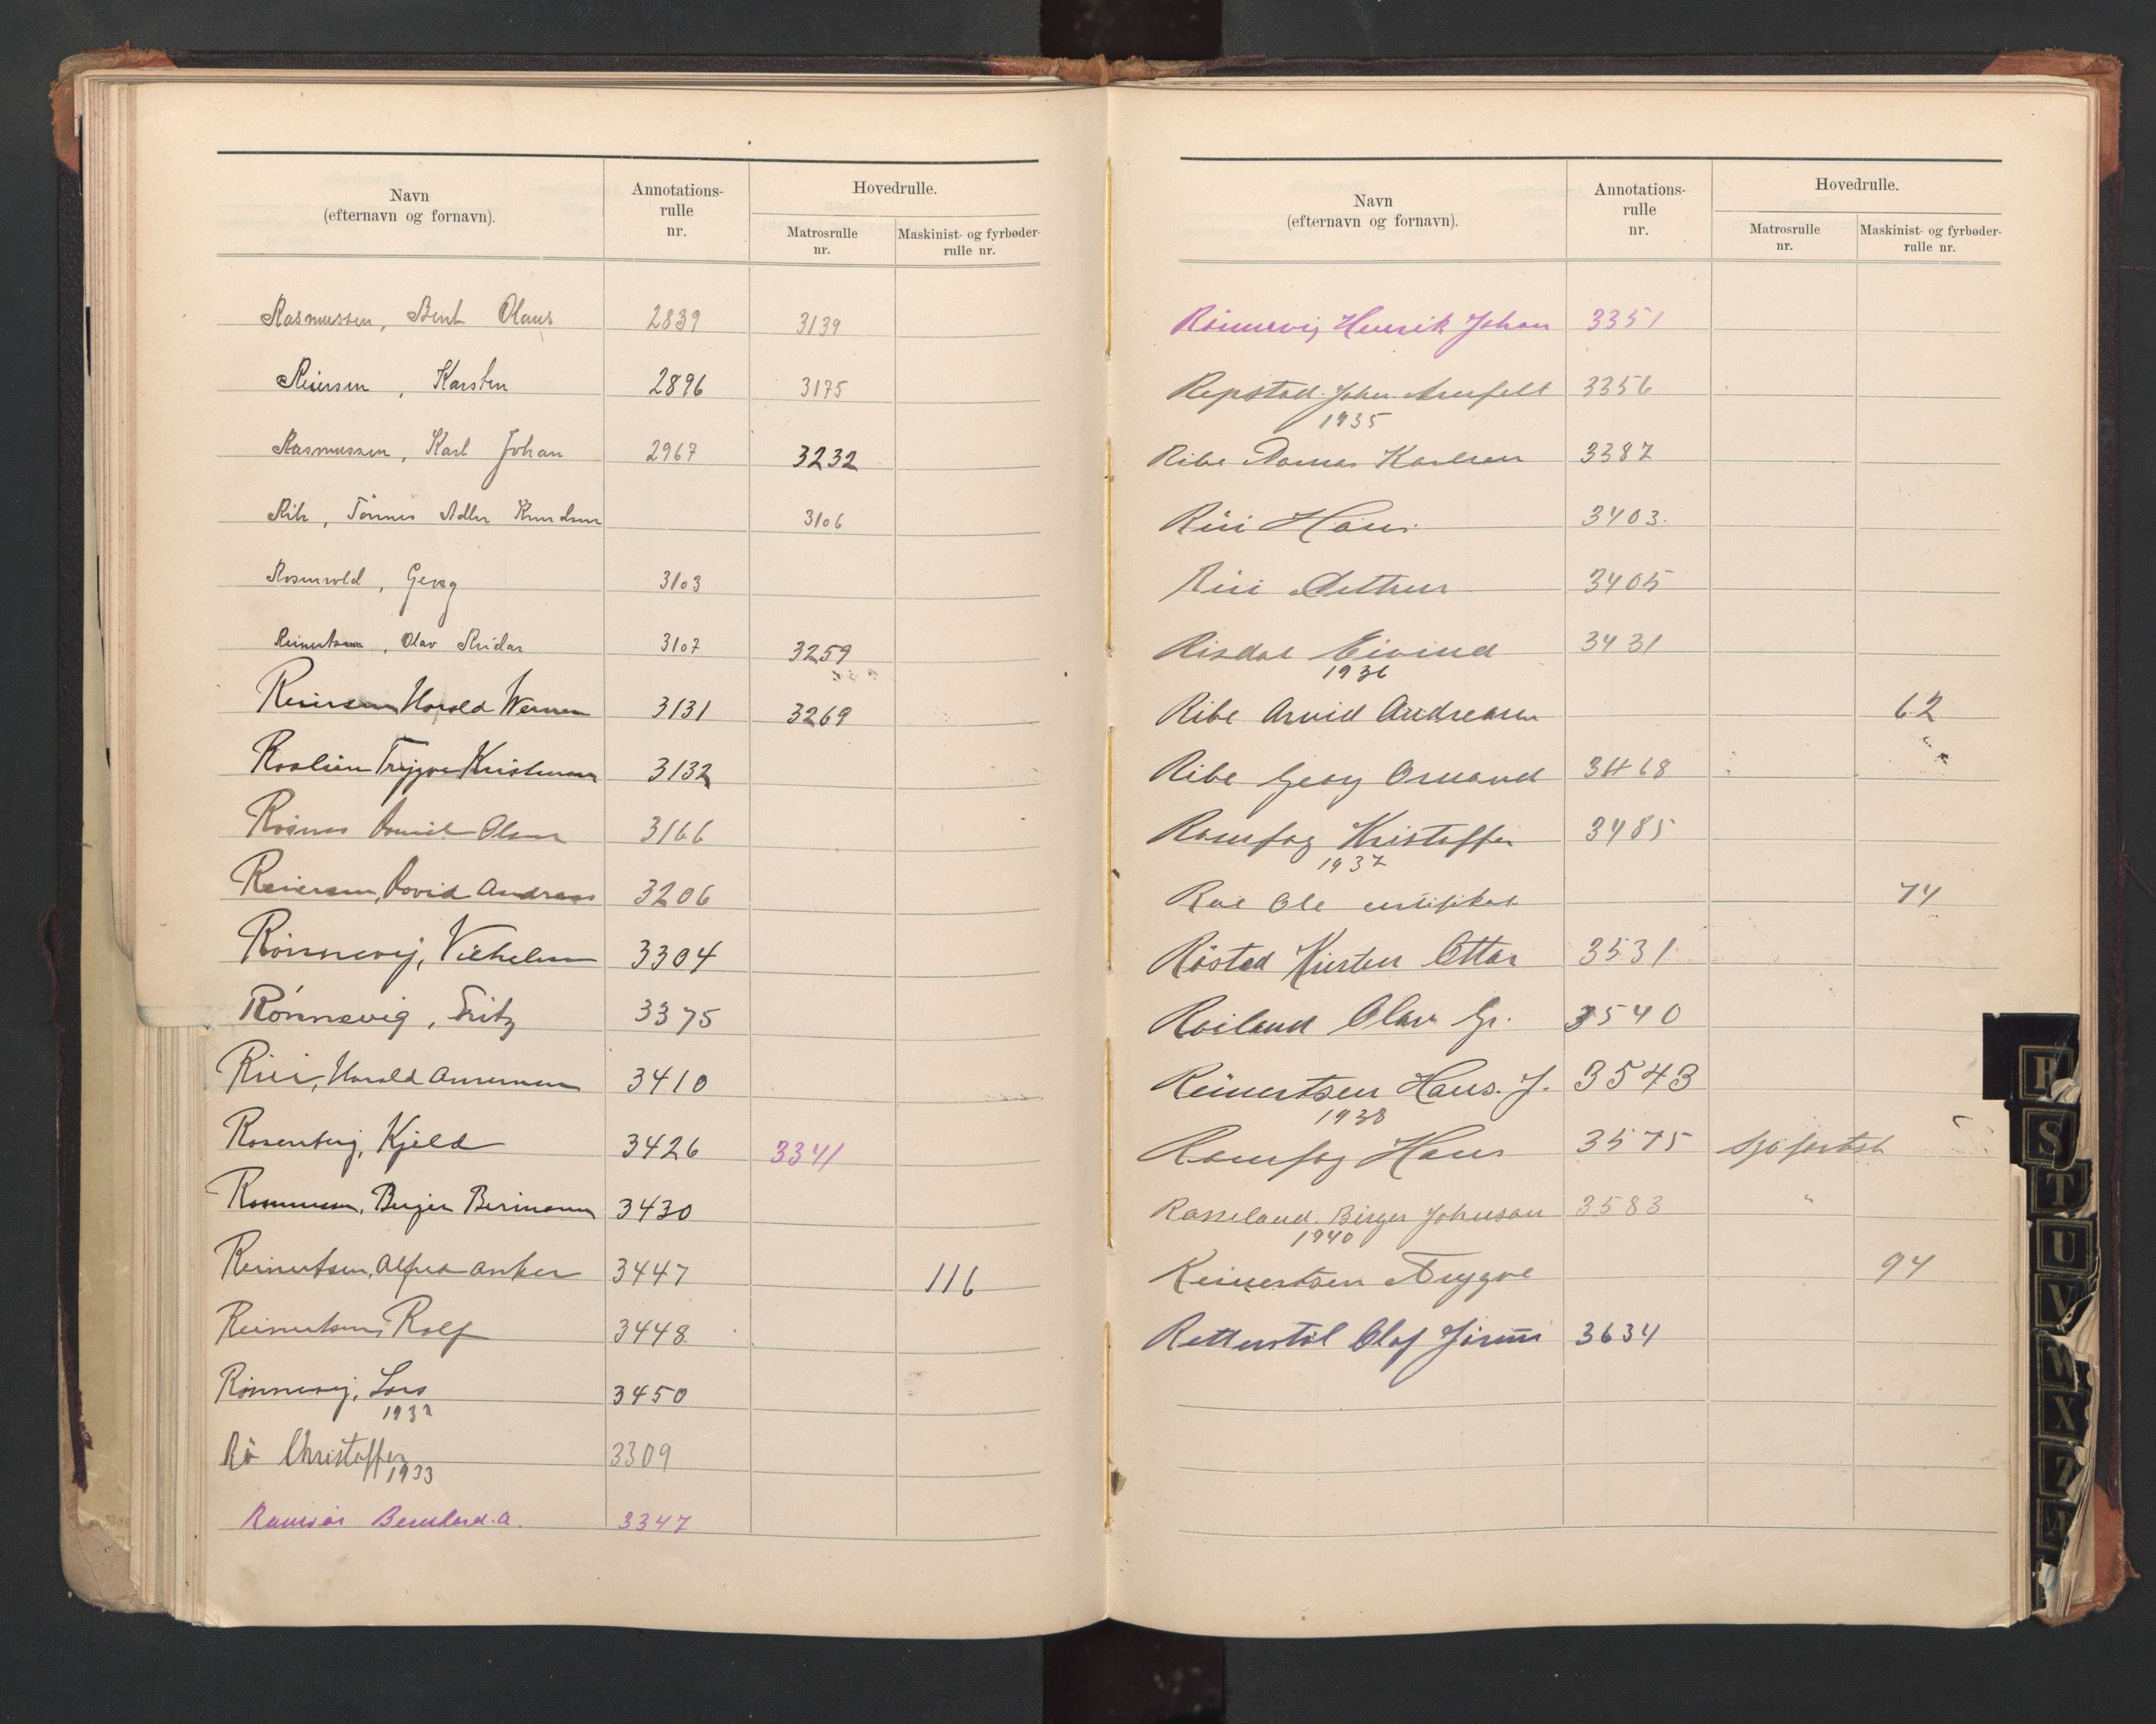 Navn
(efternavn og fornavn).
Annotations-
rulle
nr.
Hovedrulle.
Matrosrulle
nr.
Maskinist- og fyrbøder-
rulle nr.
Rasmussen, Bent Olaus 2839 3139
Reiersen, Karsten 2896 3175
Rasmussen, Karl Johan 2967 3232
Ribe, Tönnes Adler Knudsen 3106
Rosenvold, Georg 3103
Reinertsen, Olav Reidar 3107 3259
Reiersen Harold Werner 3131 3269
Roalsen Trygve Kristensen 3132
Rosnes Daniel Olsen 3166
Reiersen, David Andreas 3206
Rönnevig, Vilhelm 3304
Rönnevig, Fritz 3375
Riii, Harald 3410
Rosenberg, Kjeld 3426 3341
Rasmussen, Birger 3430
Reinertsen, Alfred Anker 3447 116
Reinertsen, Rolf 3448
Rönnevig, Lars 3450
1932
Rö Christoffer 3309
1933
Ramsøs Bernhard. A. 3347
Navn
(efternavn og fornavn).
Annotations-
rulle
nr.
Hovedrulle.
Matrosrulle
nr.
Maskinist- og fyrbøder-
rulle nr.
Rönnevig Henrik Johan 3351
Repstad. John Arnfelt 3356
1935
Ribe Tomas Karlsen 3387
Hans 3403.
Arthur 3405
Risdal Eivind 3431
1936
Ribe Arvid Andreasen 62
Ribe Georg Osmand 3468
Ramfog Kristoffer 3485
1937
Roe Ole 74
Röstad Kristen Ottar 3531
Roiland Olav Gr. 3540
Reinertsen Hans. J. 3543
1938
Ramfog Hans 3575 Sjöfartsb
Rasseland. Birger Johnson 3583 "
1940
Reinertsen Trygve 94
Retterstöl Olaf 3634
R
S
T
U
V
W
X
Z